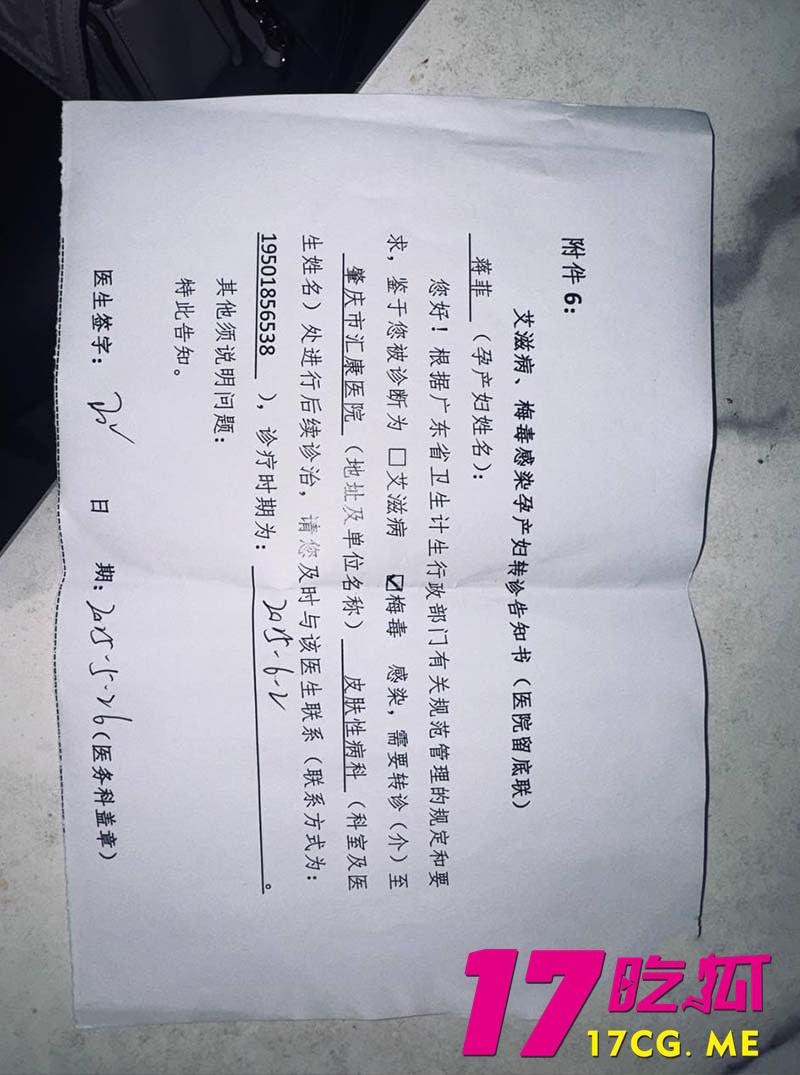 附件 6：
艾滋病、梅毒感染孕产妇转诊告知书（医院留底联）
蒋菲（孕产妇姓名）：
您好！根据广东省卫生计生行政部门有关规范管理的规定和要
求，鉴于您被诊断为 □艾滋病 ☑梅毒 感染，需要转诊（介）至
肇庆市汇康医院（地址及单位名称）皮肤性病科（科室及医
生姓名）处进行后续诊治，请您及时与该医生联系（联系方式为：
19501856538），诊疗时期为：2025-6-2。
其他须说明问题：
特此告知。
医生签字： 日 期：2025-5-26（医务科盖章）
17吃瓜
17CG.ME